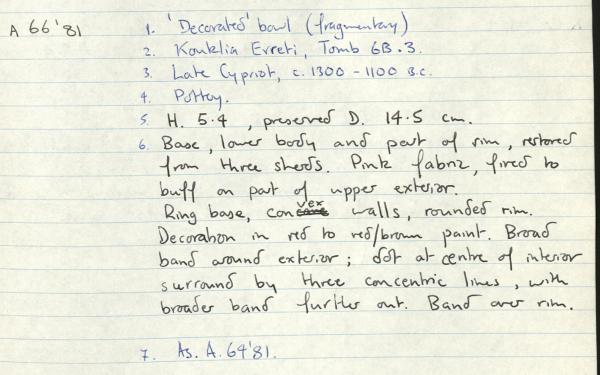 A 66'81
1. 'Decorated' bowl (fragmentary)
2. Kouklia Evreti, Tomb 6B.3.
3. Late Cypriot, c. 1300 - 1100 B.C.
4. Pottery.
5. H. 5.4, preserved D. 14.5 cm.
6. Base, lower body and part of rim, restored
from three sherds. Pink fabric, fired to
buff on part of upper exterior.
Ring base, convex walls, rounded rim.
Decoration in red to red/brown paint. Broad
band around exterior; dot at centre of interior
surround by three concentric lines, with
broader band further out. Band over rim.
7. As. A. 64'81.